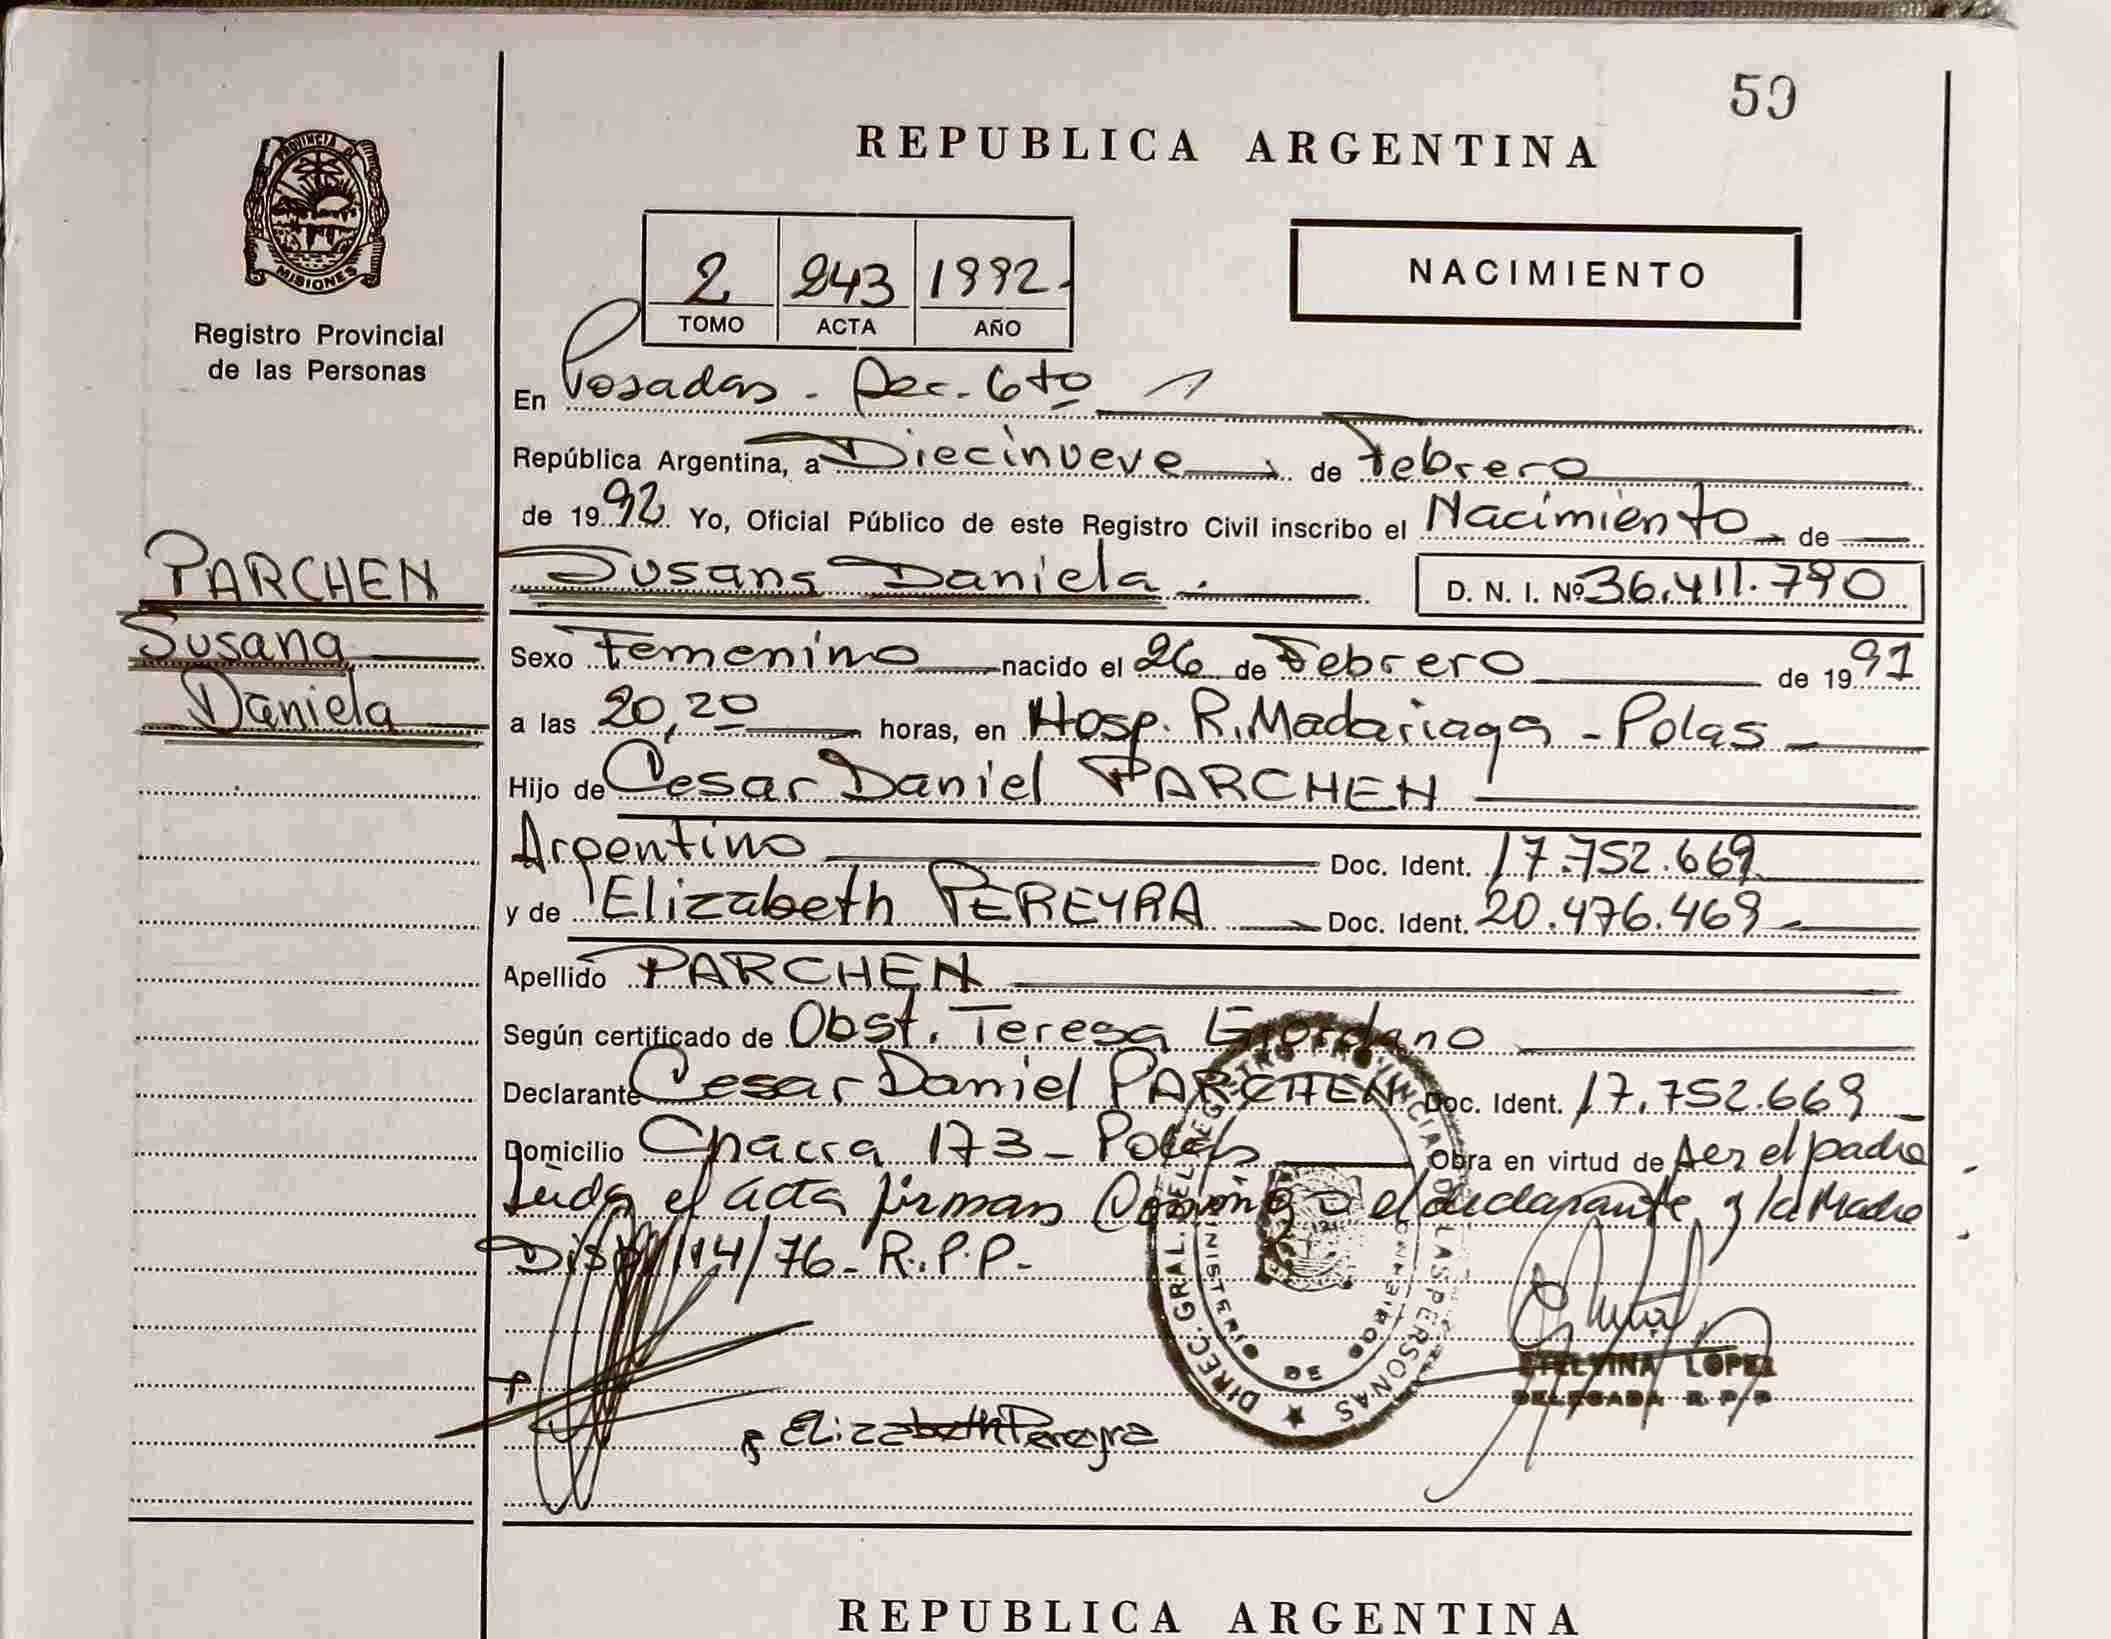 50
REPUBLICA ARGENTINA
PROVINCIA DE
MISIONES
Registro Provincial
de las Personas
2 243 1992
TOMO ACTA AÑO
NACIMIENTO
En Posadas - Sec. 6to
República Argentina, a Diecinueve de Febrero
de 1992 Yo, Oficial Público de este Registro Civil inscribo el Nacimiento de
PARCHEN
Susana
Daniela
Susana Daniela. D. N. I. Nº 36.411.790
Sexo Femenino nacido el 26 de Febrero de 1991
a las 20,20 horas, en Hosp. R. Madariaga - Pdas
Hijo de Cesar Daniel PARCHEN
Argentino Doc. Ident. 17.752.669
y de Elizabeth PEREYRA Doc. Ident. 20.476.469
Apellido PARCHEN
Según certificado de Obst. Teresa Giordano
Declarante Cesar Daniel PARCHEN Doc. Ident. 17.752.669
Domicilio Chacra 173 - Pdas Obra en virtud de ser el padre
Leida el acta firman el declarante y la Madre
Disp. 114/76 - R.P.P.
DIREC. GRAL. DEL REGISTRO PROVINCIAL DE LAS PERSONAS
ETELVINA LOPEZ
DELEGADA R.P.P
Elizabeth Pereyra
REPUBLICA ARGENTINA